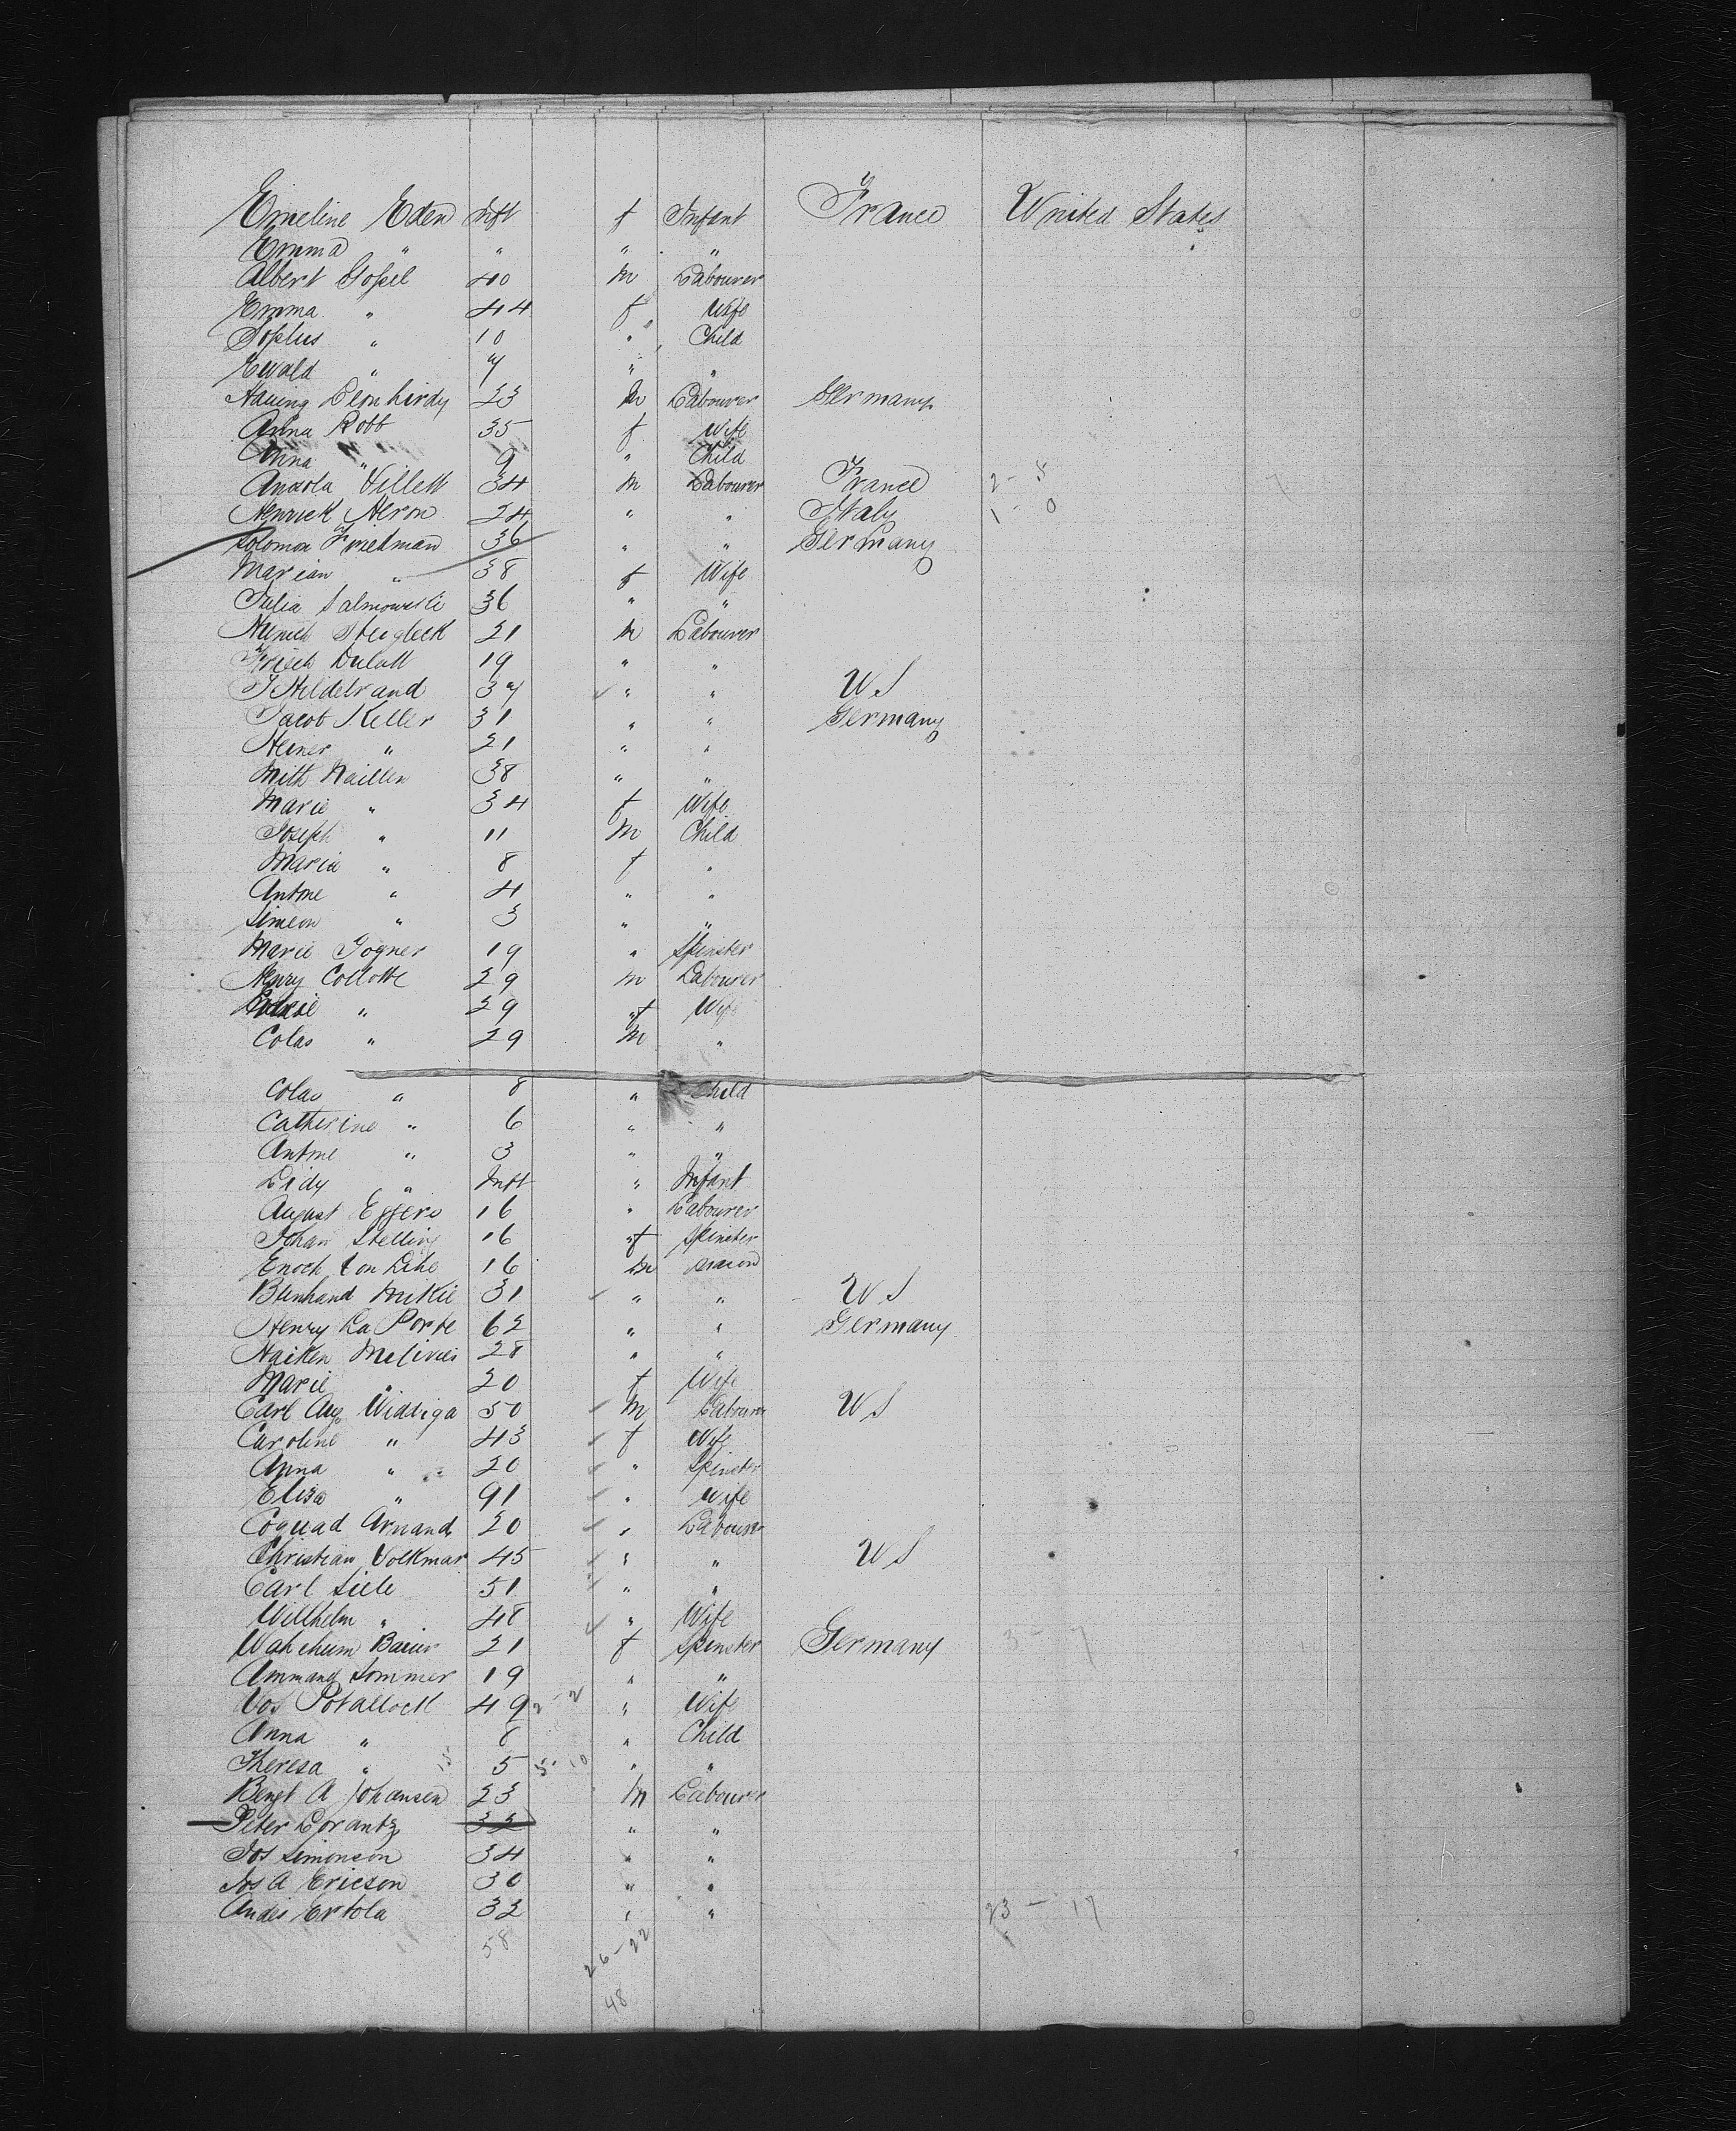 Emeline Eden Inft f Infant France United States
Emma " " " "
Albert Gossel 40 m Labourer
Emma " 44 f Wife
Sophus " 10 " Child
Ewald " 7 " "
Leonhirdy 23 m Labourer Germany
Anna Robb 35 f Wife
Anna " 9 " Child
Villett 34 m Labourer France 2-5
Henrick Heron 24 " " Italy 1-0
Solomon Frietman 36 " " Germany
Marian " 38 f Wife
Julia Salmowski 36 " "
Stegleck 21 m Labourer
19 " "
J Hildebrand 37 " " U S
Jacob Keller 31 " " Germany
Heiner " 21 " "
Mith Naillen 38 " "
Marie " 34 f Wife
Joseph " 11 m Child
Maria " 8 f "
Antone " 4 " "
Simeon " 3 " "
Marie Gogner 19 " Spinster
Henry Collotte 29 m Labourer
" 29 f Wife
Colas " 29 m "
Colas " 8 " Child
Catherine " 6 " "
Antone " 3 " "
Lidy " Inft " Infant
August Eggers 16 " Labourer
Johan Stelling 16 f Spinster
Enoch Von Dihe 16 m
Mikie 31 " " U S
Henry La Porte 62 " " Germany
Haiken 28 " "
Marie " 20 f Wife
Carl Aug Widdiga 50 m Labourer U S
Caroline " 43 f Wife
Anna " 20 " Spinster
Eliza " 91 " Wife
Coquad Arnand 20 " Labourer
Christian Volkmar 45 " " U S
Carl Siele 51 " "
Willhelm " 48 " Wife
Baiur 21 f Spinster Germany 3-7
Ammand Sommer 19 " "
Vos Potallock 49 2-2 " Wife
Anna " 8 " Child
Theresa " 5 5-10 " "
Bengt A Johansen 23 m Labourer
Peter Lorantz 32 " "
Jos Simonson 34 " "
Jos A Ericson 30 " "
Andes Ertola 32 " " 23-17
58 26-22
48